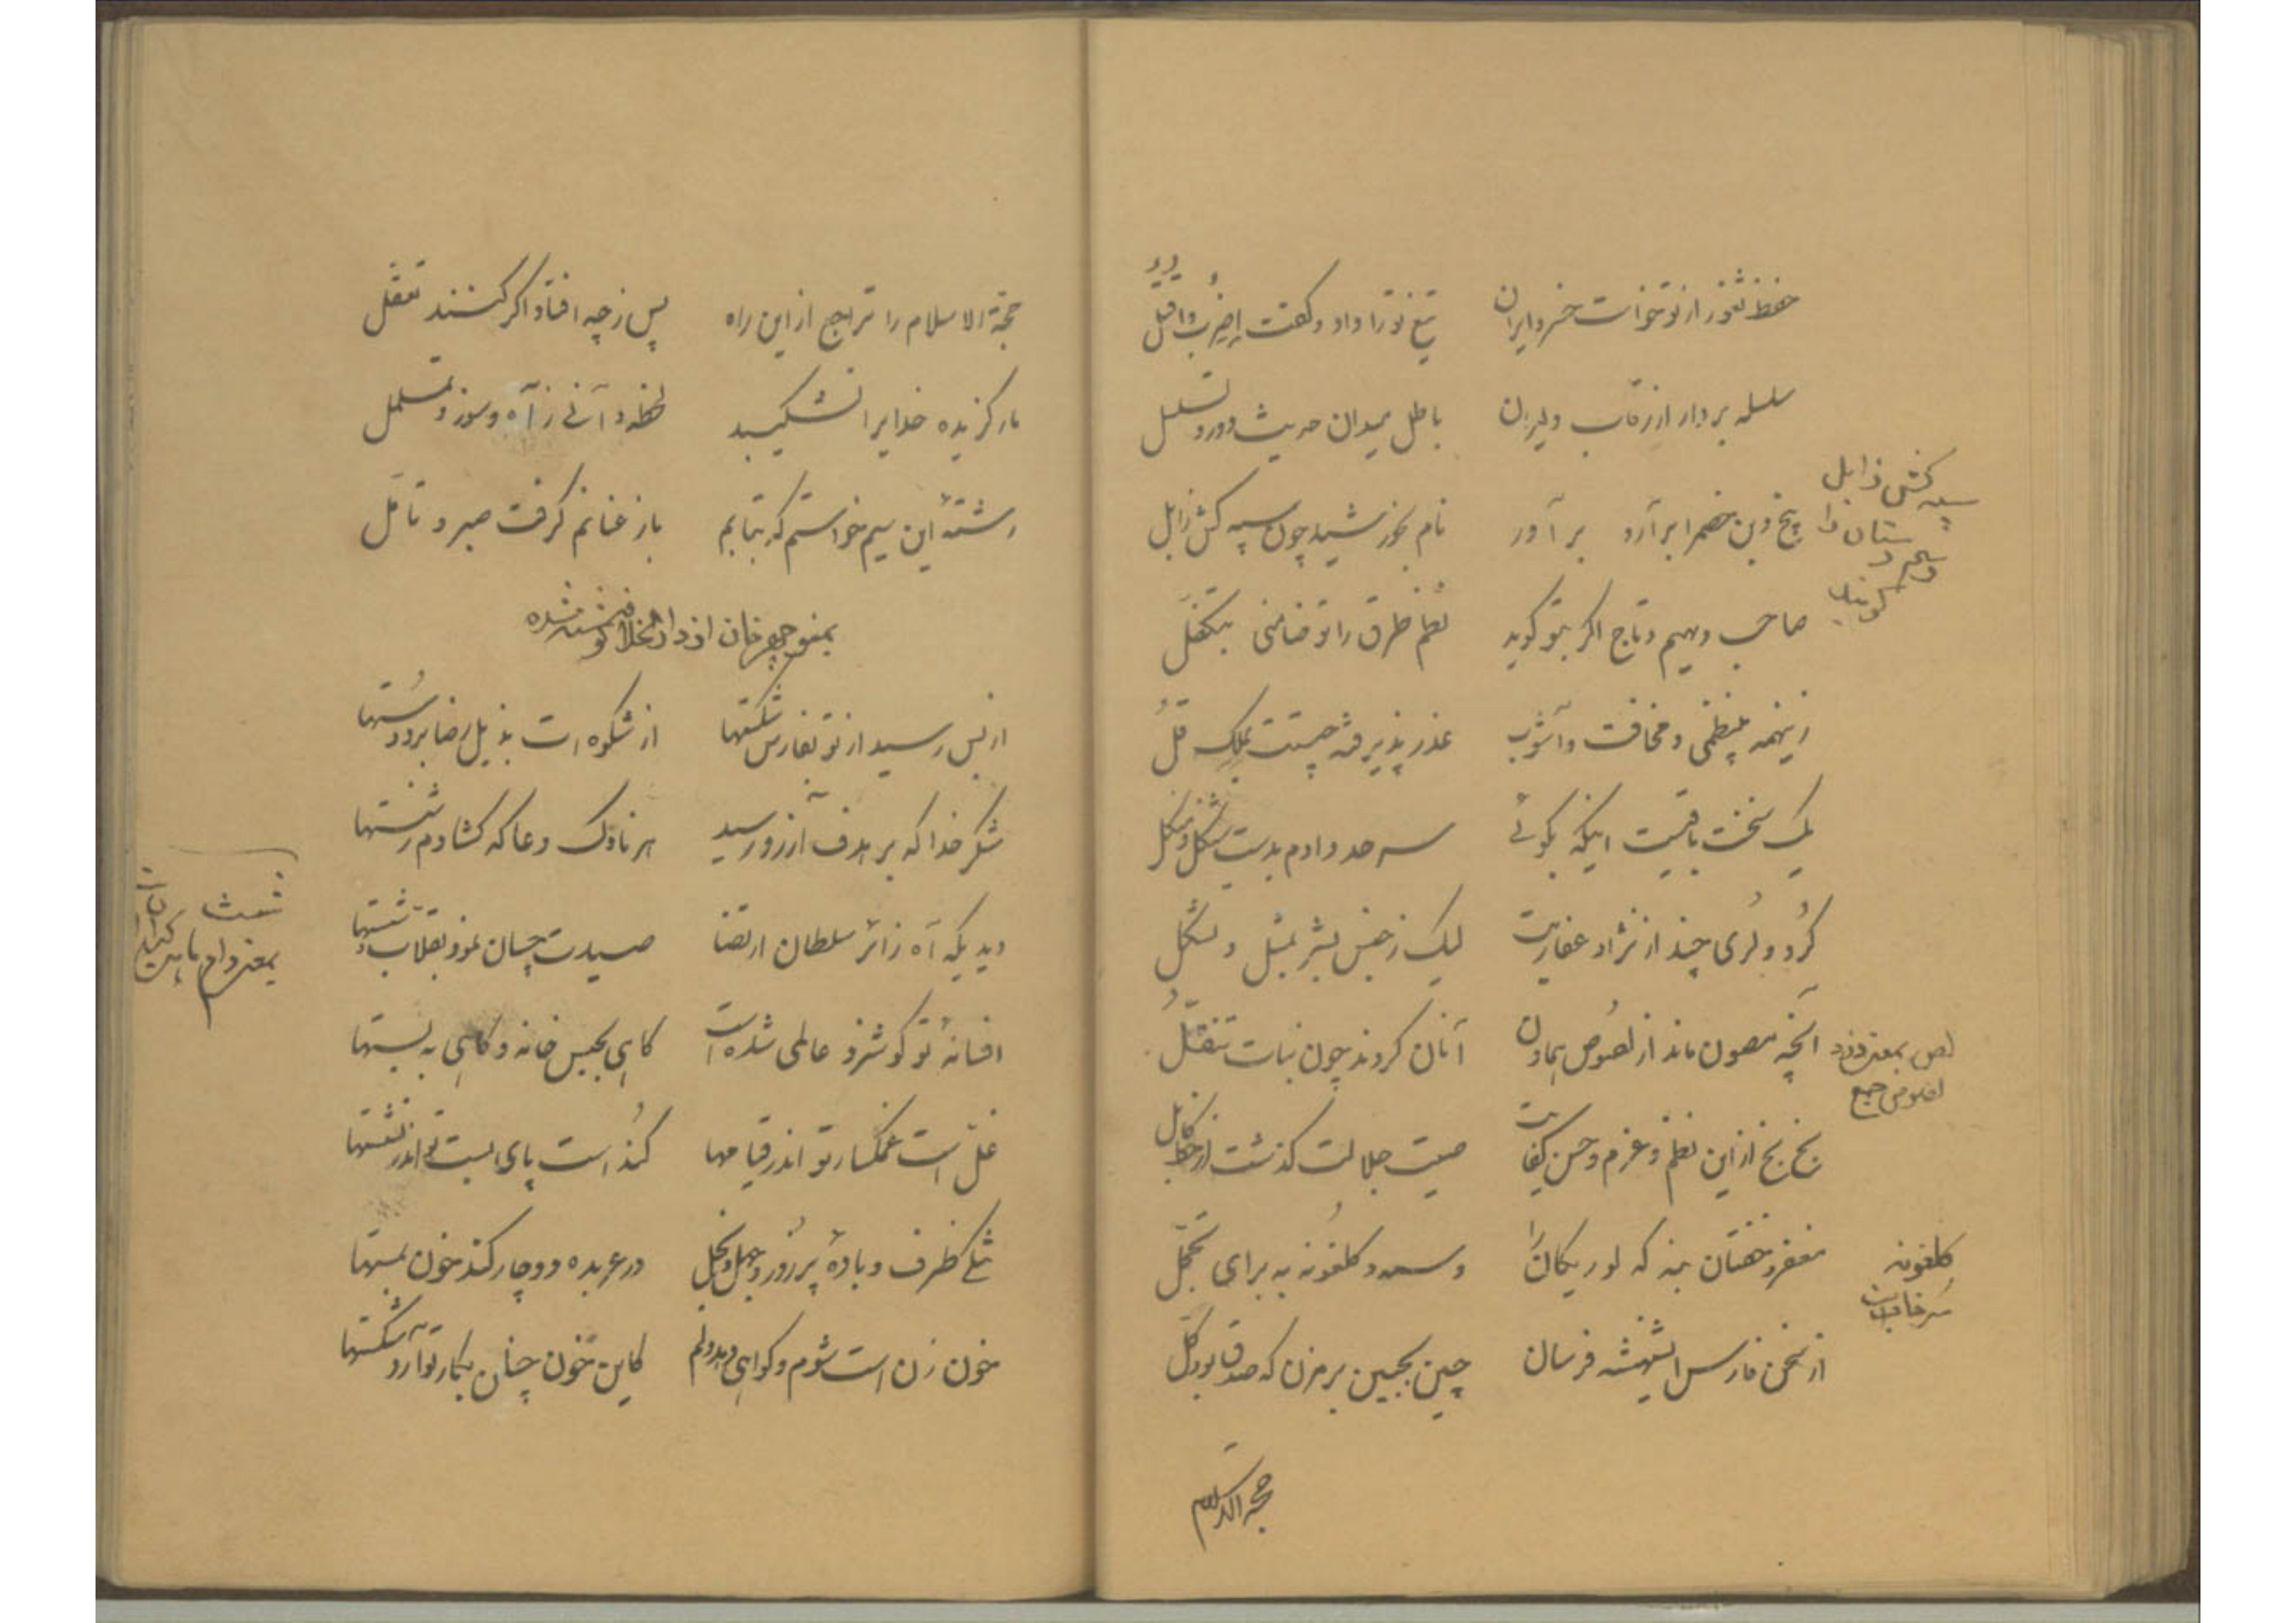 حفظ ثغور از تو خواست خسرو ایران تیغ تو را داد و گفت اضرب واقتل
سلسله بردار از رقاب دلیران باطل میدان حدیث دور و تسلسل
بیخ و بن خصم را برآرد برآور نام بخورشید چون سپه کش زابل
سپه کش زابل
رستم دستان را گویند
صاحب دیهیم و تاج اگر بتو گوید نظم طرق را تو ضامنی بتکفل
زینهمه بینظمی و مخافت و آشوب عذر پذیرفته چیست بملک قل
یک سخنت باقیست اینکه بگوئی سرحد دادم بدست شنگل و منگل
کرد و لری چند از نژاد عفاریت لیک ز جنس بشر بمثل و تشکل
آنچه مصون ماند از لصوص بهامون آنان کردند چون نبات تنقل
لص بمعنی دزد
لصوص جمع
بخ بخ از این نظم و عزم و حسن کفایت صیت جلالت گذشت از خط کابل
مغفر و خفتان بنه که لوریکان را وسمه و گلغونه به برای تجمل
گلغونه
سرخاب است
از سخن فارس شهنشه فرسان چین بجبین بر مزن که صدق بود کل
حجة الاسلام
حجة الاسلام را تراجع از این راه پس ز چه افتاد اگر کنند تعقل
بار گزیده خدایرا نشکیبد لحظه و آنی ز آه و سوز و تململ
رشتهٔ این سیم خواستم که بتابم باز عنانم گرفت صبر و تأمل
بمنوچهرخان از دارالخلافه نوشته شده
از بس رسید از تو بفارس شکستها از شکوه است بذیل رضا برد دستها
شکر خدا که بر هدف آرزو رسید هر ناوک دعا که گشادم ز شستها
دیدیکه آه زائر سلطان ارتضا صیدت چسان نمود بقلاب شستها
شست
بمعنی دام ماهی گیران است
افسانهٔ تو گوشزد عالمی شده است گاهی بحبس خانه و گاهی به بستها
غل است غمگسار تو اندر قیامها کند است پای بست تو اندر نشستها
تنگ ظرف و بادهٔ پر زور و جهل و بخل در عربده دوچار کند خون بمستها
خون زن است شوم و گواهی دهد دلم کاین خون چنان بکار تو آرد شکستها